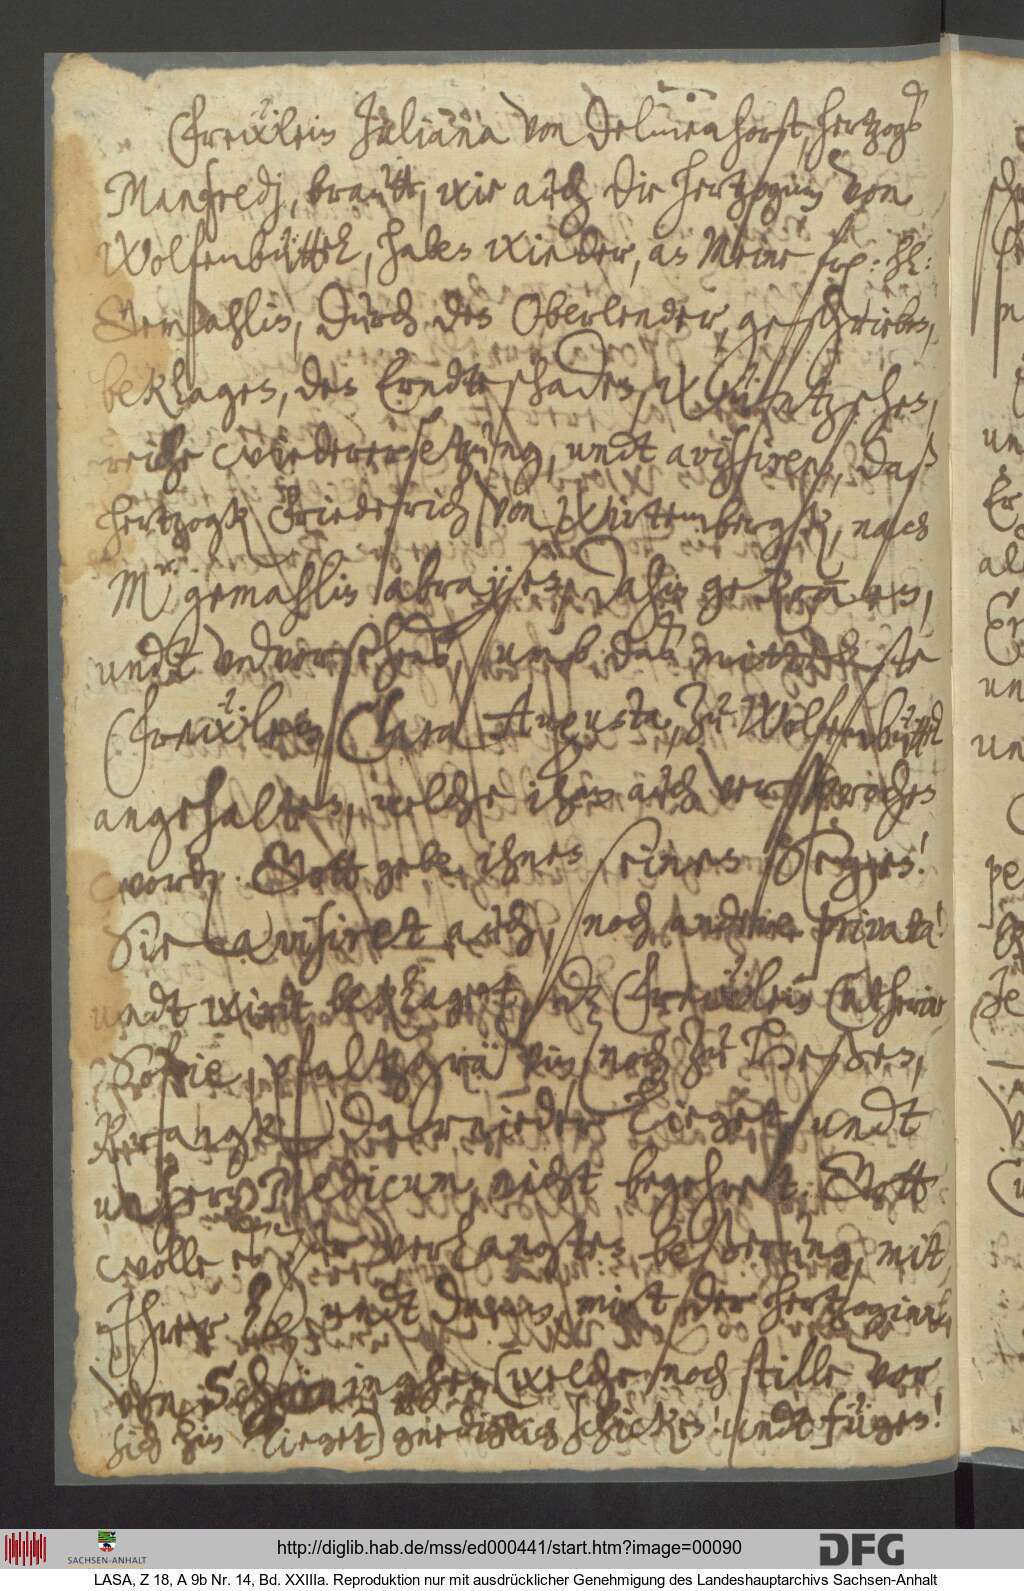 Freẅlein Juliana von Delmenhorst, hertzogs
Manfredj, brautt, wie auch die hertzogin von
Wolfenbüttel, haben wieder, an Meine frp: hl:
Gemahlin, durch den Oberlender, geschrieben,
beklagen, den Erndteschaden, wüntzschen,
reiche wiederersetzung, undt avisiren, daß
hertzogk Friederich von Wirtembergk, nach
Mr gemahlin abrayse, dahin gekommen,
undt unb das
Freẅlein Clara Augusta, zu Wolfenbüttel
angehalten, welche ihm auch versprochen
word. Gott gebe ihnen seinen Segen!
Sie avisiret auch, noch andere privata!
undt wirdt beklaget, dz Freẅlein Catherine
Sofie, pfaltzgrävin, noch zu Heßen,
kranck darnieder lieget, undt
unsern Medicum, nicht begehret. Gott
wolle erwüntzschte verlangte beßerung, mit
Ihrer undt dann, mit der hertzoginn,
von Scheiningen (welche noch stille vor
sich hin lieget) gnediglich schicken! undt fügen!
http://diglib.hab.de/mss/ed000441/start.htm?image=00090
SACHSEN-ANHALT
DFG
LASA, Z 18, A 9b Nr. 14, Bd. XXIIIa. Reproduktion nur mit ausdrücklicher Genehmigung des Landeshauptarchivs Sachsen-Anhalt